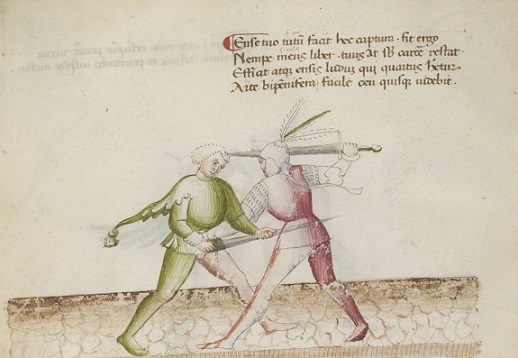 Ense tuo tutũ facit hec captura · fit ergo
Nempe meus liber · tuus at sb̃ carcẽ restat ·
Efficiat atqꝫ ensis ludũ qui quartus hẽtur ·
Arte bipẽnifera facile ceu quisqꝫ videbit ·